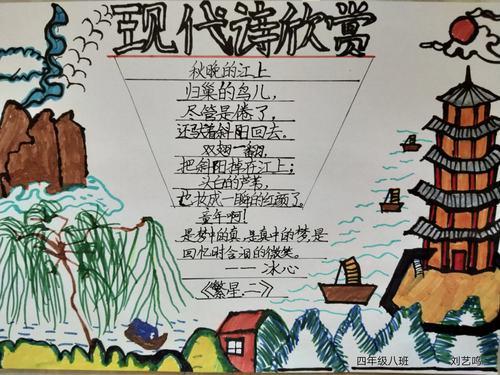 现代诗欣赏
秋晚的江上
归巢的鸟儿，
尽管是倦了，
还驮着斜阳回去。
双翅一翻，
把斜阳掉在江上；
头白的芦苇，
也妆成一瞬的红颜了。
童年啊！
是梦中的真，是真中的梦，是
回忆时含泪的微笑。
——冰心
《繁星·二》
四年级八班 刘艺鸣